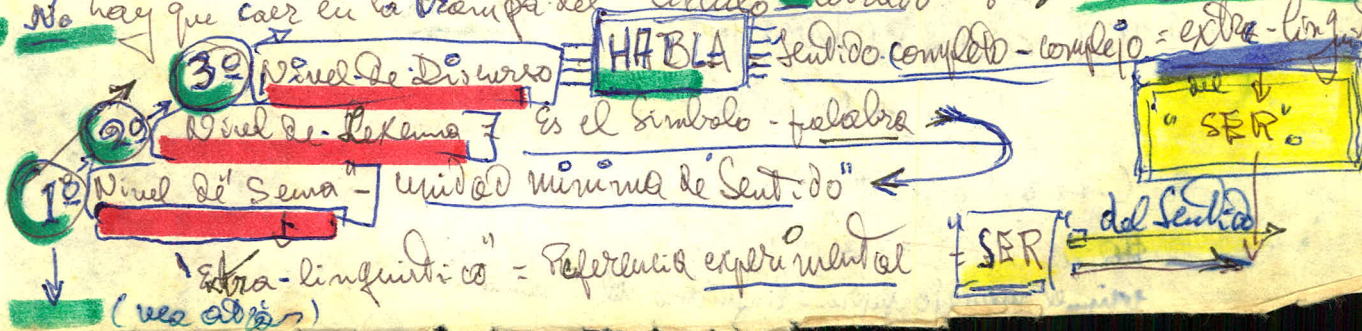 No hay que caer en la trampa del
3º Nivel-de-Discurso HABLA Sentido-completo-complejo = extra-lingui
del
2º Nivel de-Lexema = Es el Simbolo-palabra
"SER"
1º Nivel de "Sema" - unidad minima de "Sentido"
"Extra-linguistico" = Referencia experimental = "SER" del Sentido
(vea atrás)